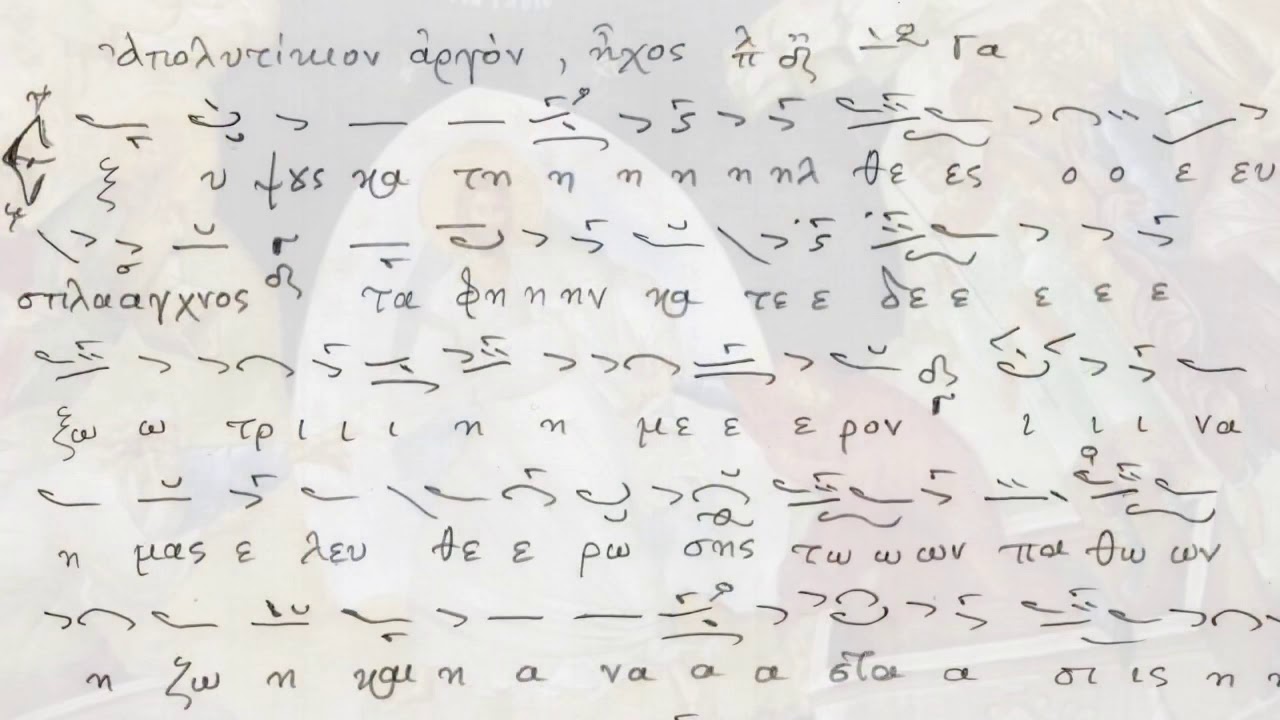 Ἀπολυτίκιον ἀργόν, ἦχος λ π δη Γα
Ἐ ξ υ ψους κα τη η η η η ηλ θε ες ο ο ε ευ
σπλααγχνος τα φη η ην κα τε ε δε ε ε ε ε
ξω ω τρι ι ι ι η η με ε ε ρον ι ι ι να
η μας ε λευ θε ε ρω σης τω ω ων πα θω ων
η ζω η και η α να α α στα α σι ις η η